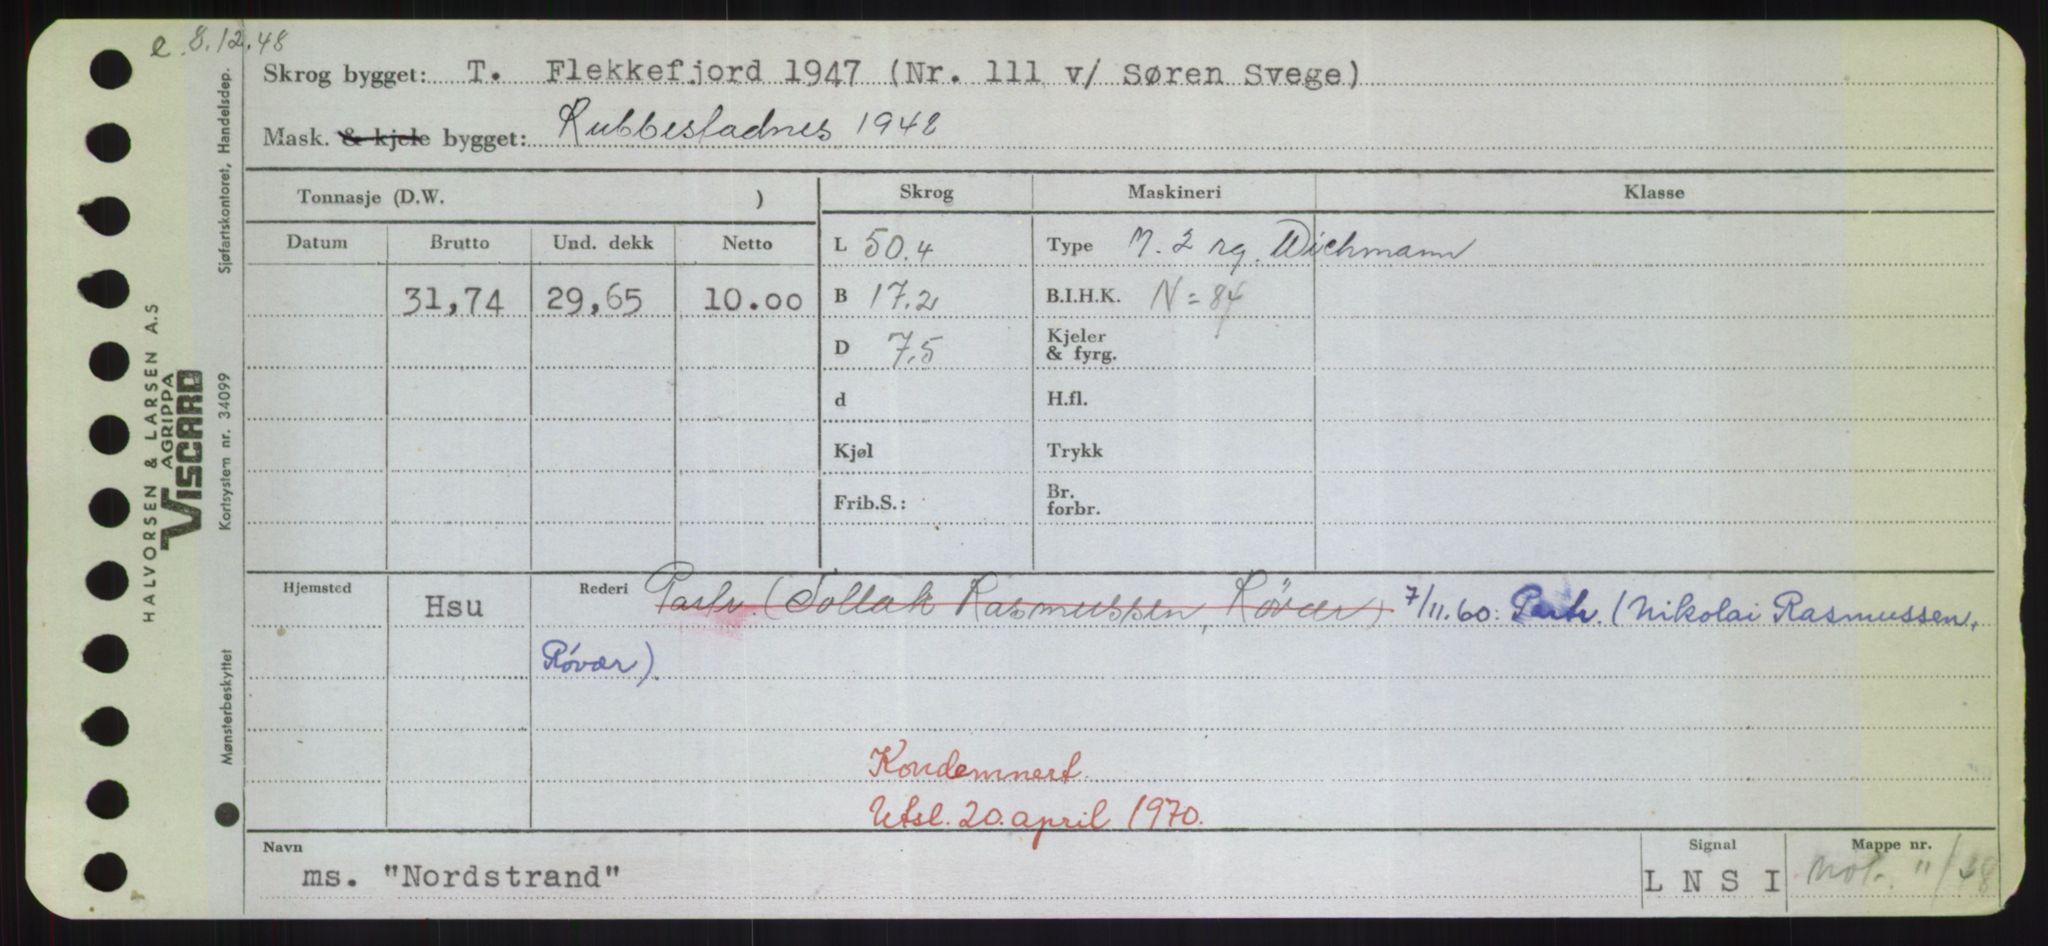 e. 8.12.48
Skrog bygget: T. Flekkefjord 1947 (Nr. 111 v/ Søren Svege)
Mask. & kjele bygget: Rubbestadnes 1948
Tonnasje (D.W. )
Skrog Maskineri Klasse
Datum Brutto Und. dekk Netto
L 50.4 Type M. 2 sq. Wichmann
31,74 29,65 10.00
B 17.2 B.I.H.K. N = 84
D 7.5 Kjeler & fyrg.
d H.fl.
Kjøl Trykk
Frib.S.: Br. forbr.
Hjemsted Hsu Rederi Partr. (Tollak Rasmussen, Røvær) 7/11.60: Partr. (Nikolai Rasmussen,
Røvær).
Kondemnert
Utsl. 20. april 1970.
Navn Signal Mappe nr.
ms. "Nordstrand" L N S I Not. 11/48
HALVORSEN & LARSEN A.S
AGRIPPA
VISCARD
Mønsterbeskyttet Kortsystem nr. 34099 Sjøfartskontoret, Handelsdep.